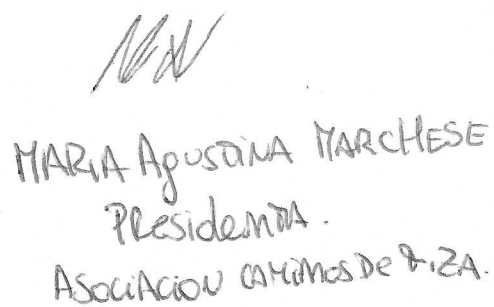 MARIA Agustina MARCHESE
Presidenta.
Asociacion CAMINOS De TIZA.